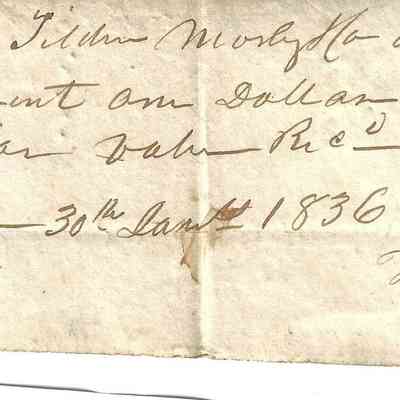 Tilden Mosly &Co
ent one Dollar
for value Rec^d
30th Jan^y 1836